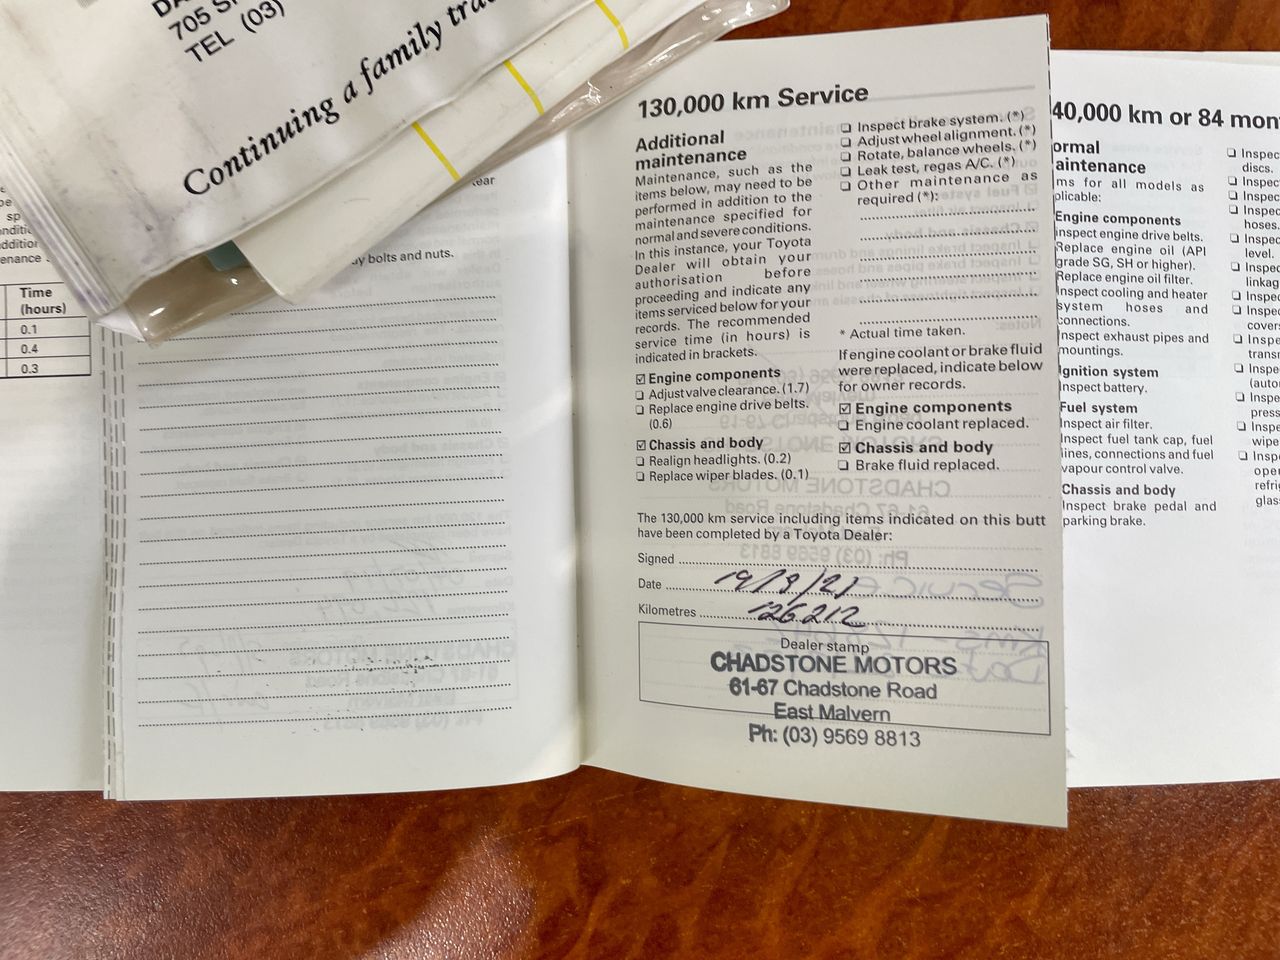 705
TEL (03)
Continuing a family
bolts and nuts.
Time
(hours)
0.1
0.4
0.3
130,000 km Service
Additional
maintenance
Maintenance, such as the
items below, may need to be
performed in addition to the
maintenance specified for
normal and severe conditions.
In this instance, your Toyota
Dealer will obtain your
authorisation before
proceeding and indicate any
items serviced below for your
records. The recommended
service time (in hours) is
indicated in brackets.
☑ Engine components
❏ Adjust valve clearance. (1.7)
❏ Replace engine drive belts.
(0.6)
☑ Chassis and body
❏ Realign headlights. (0.2)
❏ Replace wiper blades. (0.1)
❏ Inspect brake system. (*)
❏ Adjust wheel alignment. (*)
❏ Rotate, balance wheels. (*)
❏ Leak test, regas A/C. (*)
❏ Other maintenance as
required (*):
* Actual time taken.
If engine coolant or brake fluid
were replaced, indicate below
for owner records.
☑ Engine components
❏ Engine coolant replaced.
☑ Chassis and body
❏ Brake fluid replaced.
The 130,000 km service including items indicated on this butt
have been completed by a Toyota Dealer:
Signed
Date 19/9/21
Kilometres 126212
Dealer stamp
CHADSTONE MOTORS
61-67 Chadstone Road
East Malvern
Ph: (03) 9569 8813
40,000 km or 84
for all models as
Engine components
Inspect engine drive belts.
Replace engine oil (API
grade SG, SH or higher).
Replace engine oil filter.
Inspect cooling and heater
system hoses and
connections.
Inspect exhaust pipes and
mountings.
Ignition system
Inspect battery.
Fuel system
Inspect air filter.
Inspect fuel tank cap, fuel
lines, connections and fuel
vapour control valve.
Chassis and body
Inspect brake pedal and
parking brake.
discs.
hoses.
level.